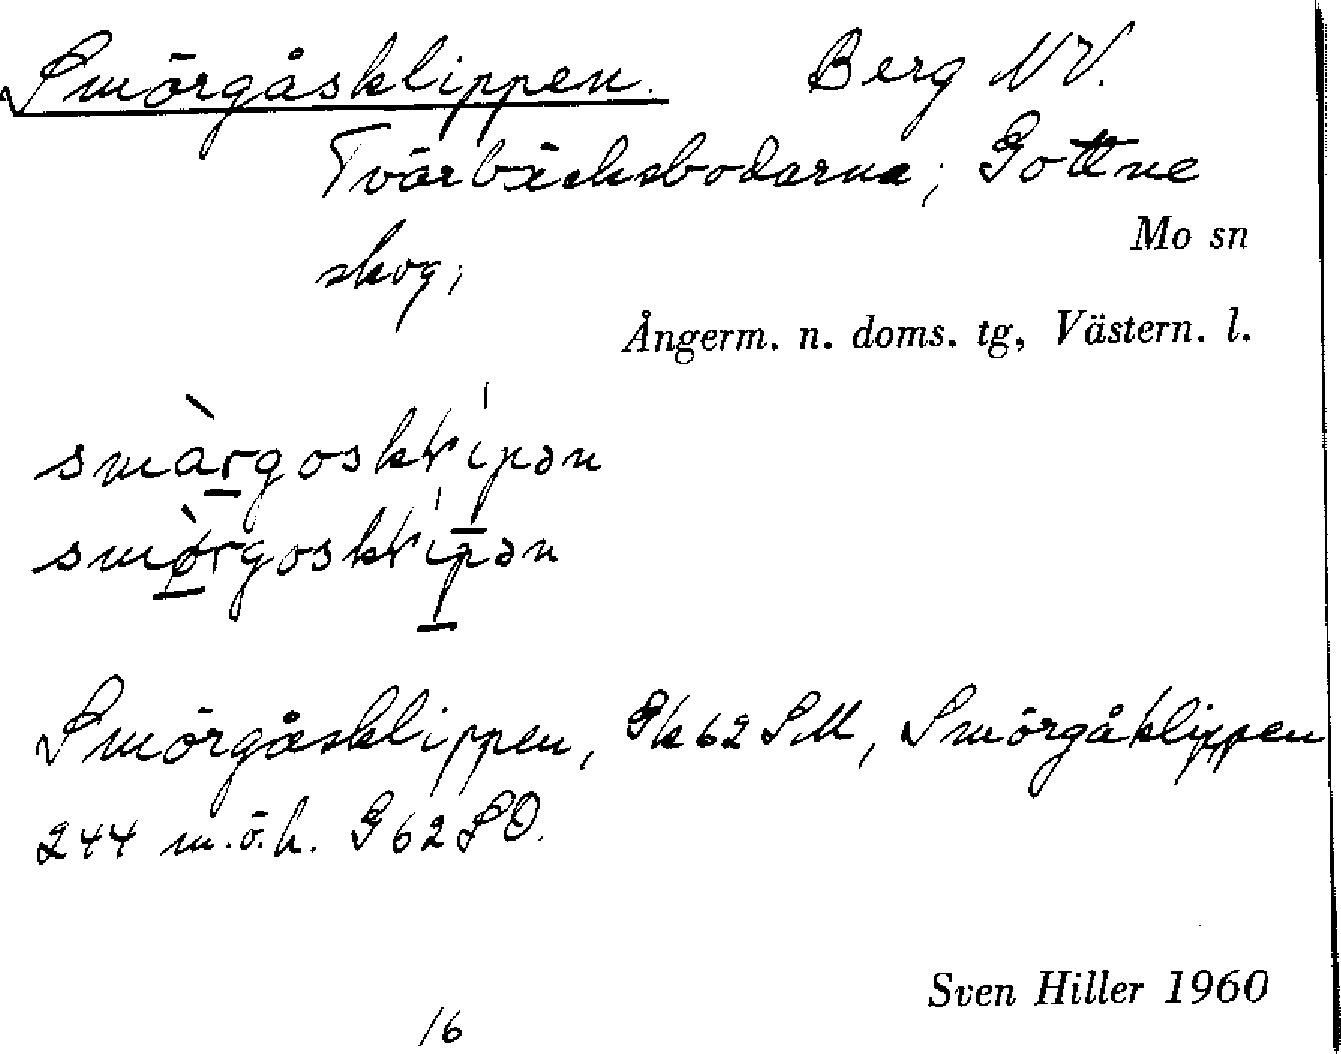 Smörgåsklippen. Berg NV.
Tvärbäcksbodarna; Gottne
Mo sn
skog;
Ångerm. n. doms. tg, Västern. l.
smàrgoskḷípən
smø̀rgoskḷípən
Smörgåsklippen, Gk 62 SM, Smörgåklippen
244 m.ö.h. G 62 SO.
Sven Hiller 1960
16